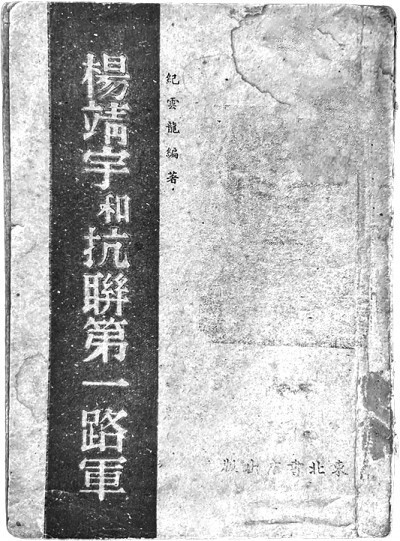 楊靖宇和抗聯第一路軍
紀雲龍編著
東北書店出版